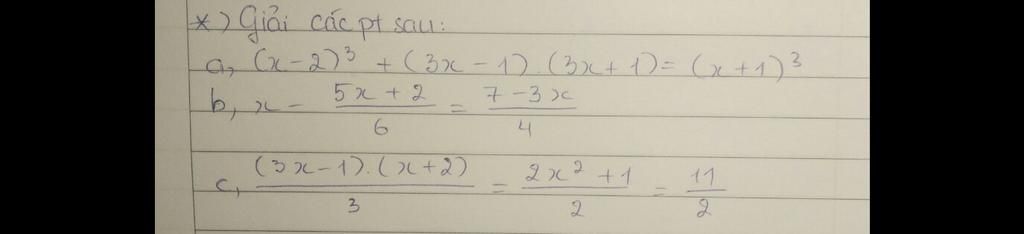 *) Giải các pt sau:
a, (x-2)³ + (3x-1).(3x+1) = (x+1)³
b, x - (5x+2)/6 = (7-3x)/4
c, (3x-1).(x+2)/3 = (2x²+1)/2 = 11/2